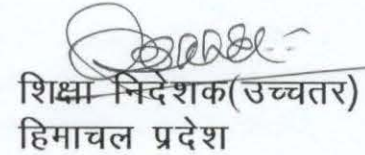 शिक्षा निदेशक(उच्चतर)
हिमाचल प्रदेश